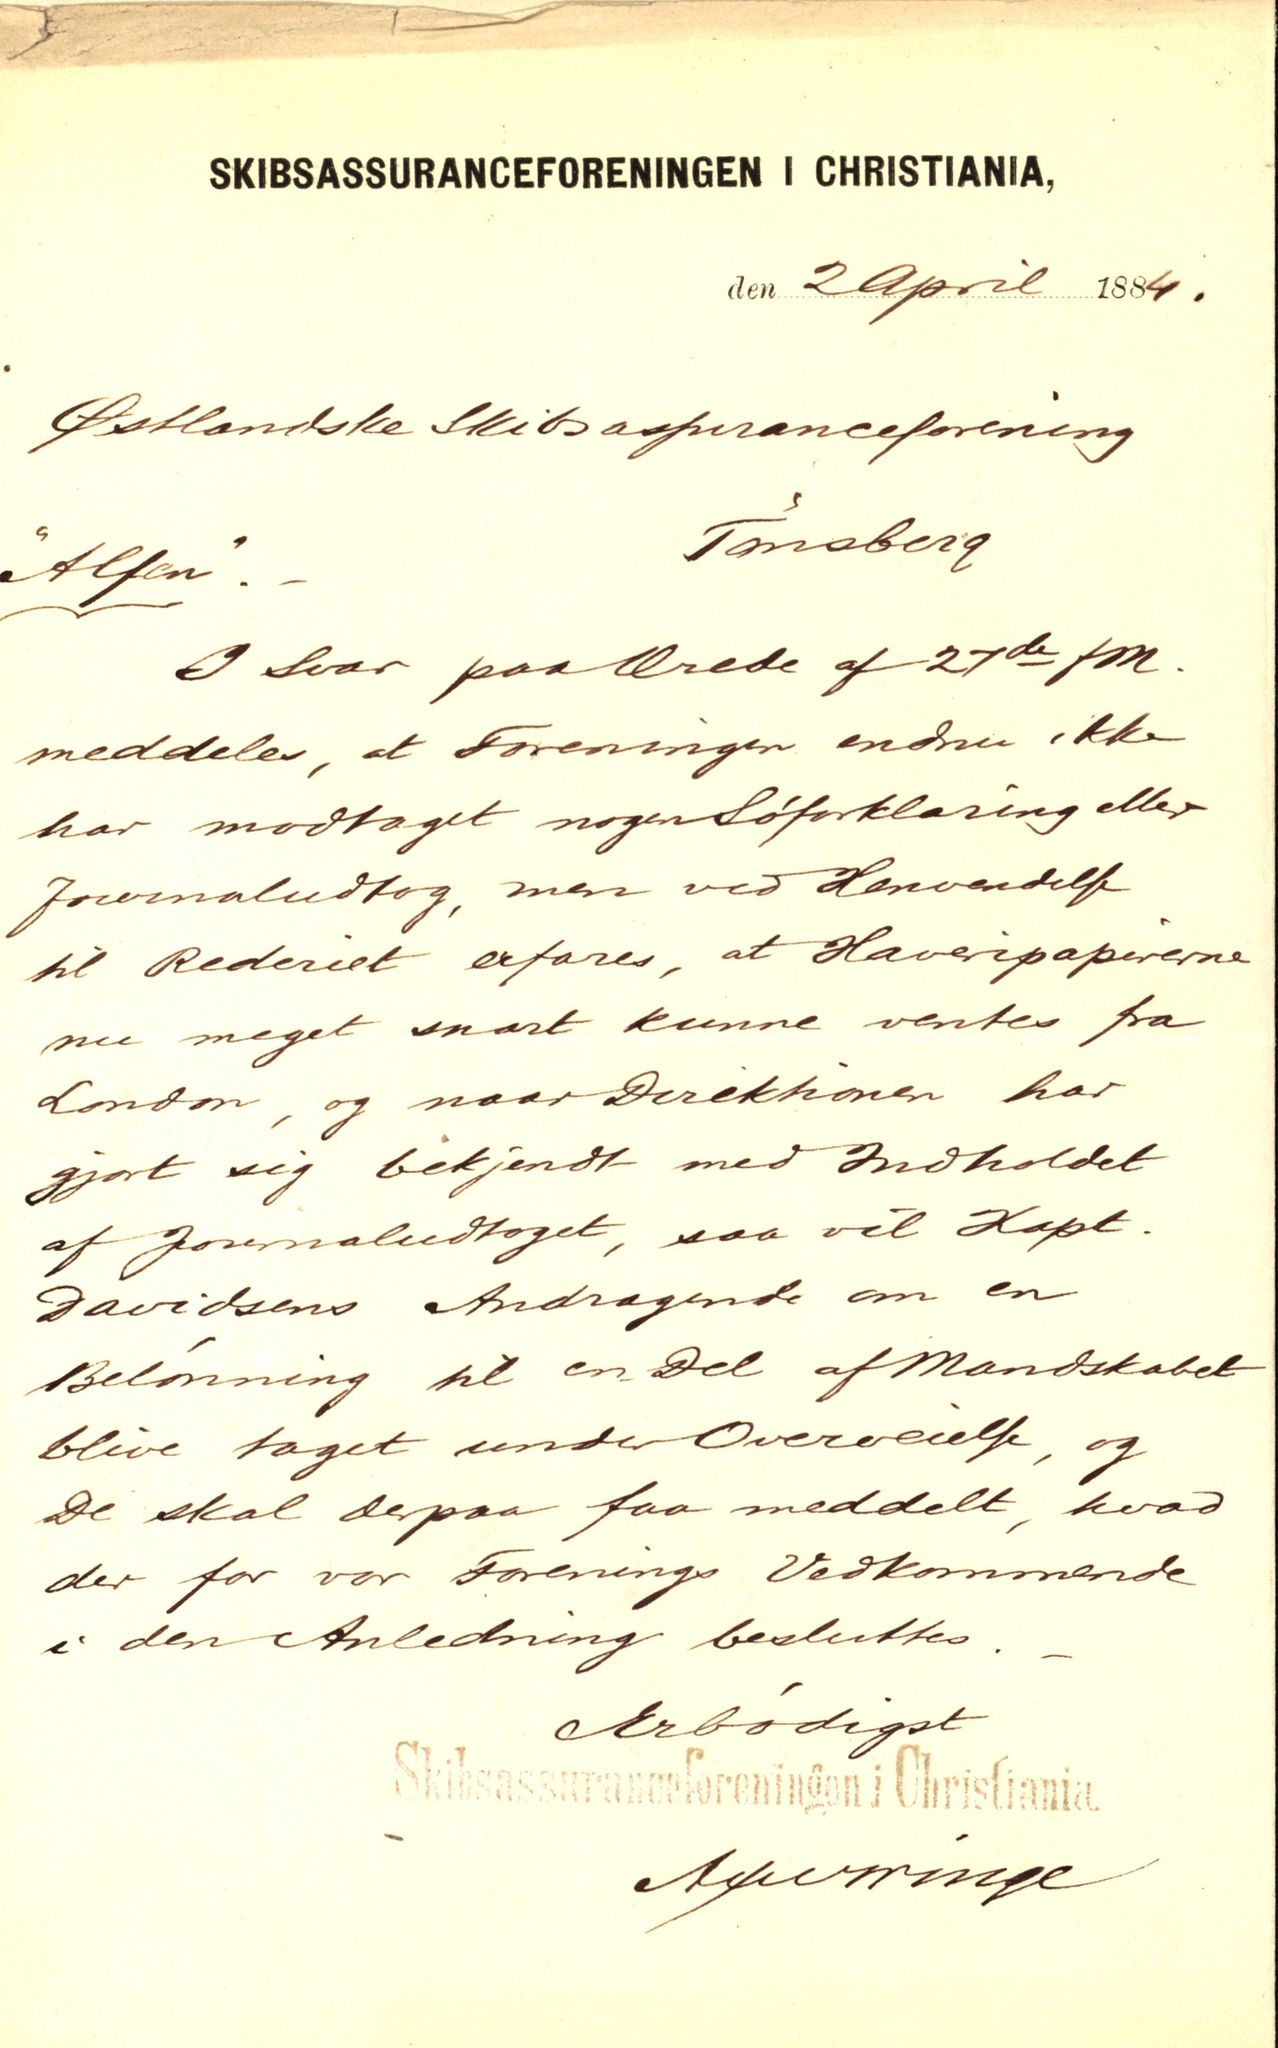 SKIBSASSURANCEFORENINGEN I CHRISTIANIA,
den 2 April 1884.
Østlandske Skibsassuranceforening
Tönsberg
"Alfen". –
I Svar paa Ærede af 27de f M.
meddeles, at Foreningen endnu ikke
har modtaget nogen Söforklaring eller
Journaludtog, men ved Henvendelse
til Rederiet erfares, at Havaripapirerne
nu meget snart kunne ventes fra
London, og naar Direktionen har
gjort sig bekjendt med Indholdet
af Journaludtoget, saa vil Kapt.
Davidsens Andragende om en
Belönning til en Del af Mandskabet
blive taget under Overveielse, og
De skal derpaa faa meddelt, hvad
der for vor Forenings Vedkommende
i den Anledning besluttes. –
Ærbödigst
Skibsassuranceforeningen i Christiania